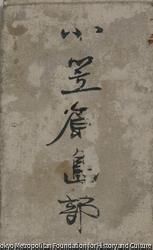 小笠原島部
okyo Metropolitan Foundation for History and Culture